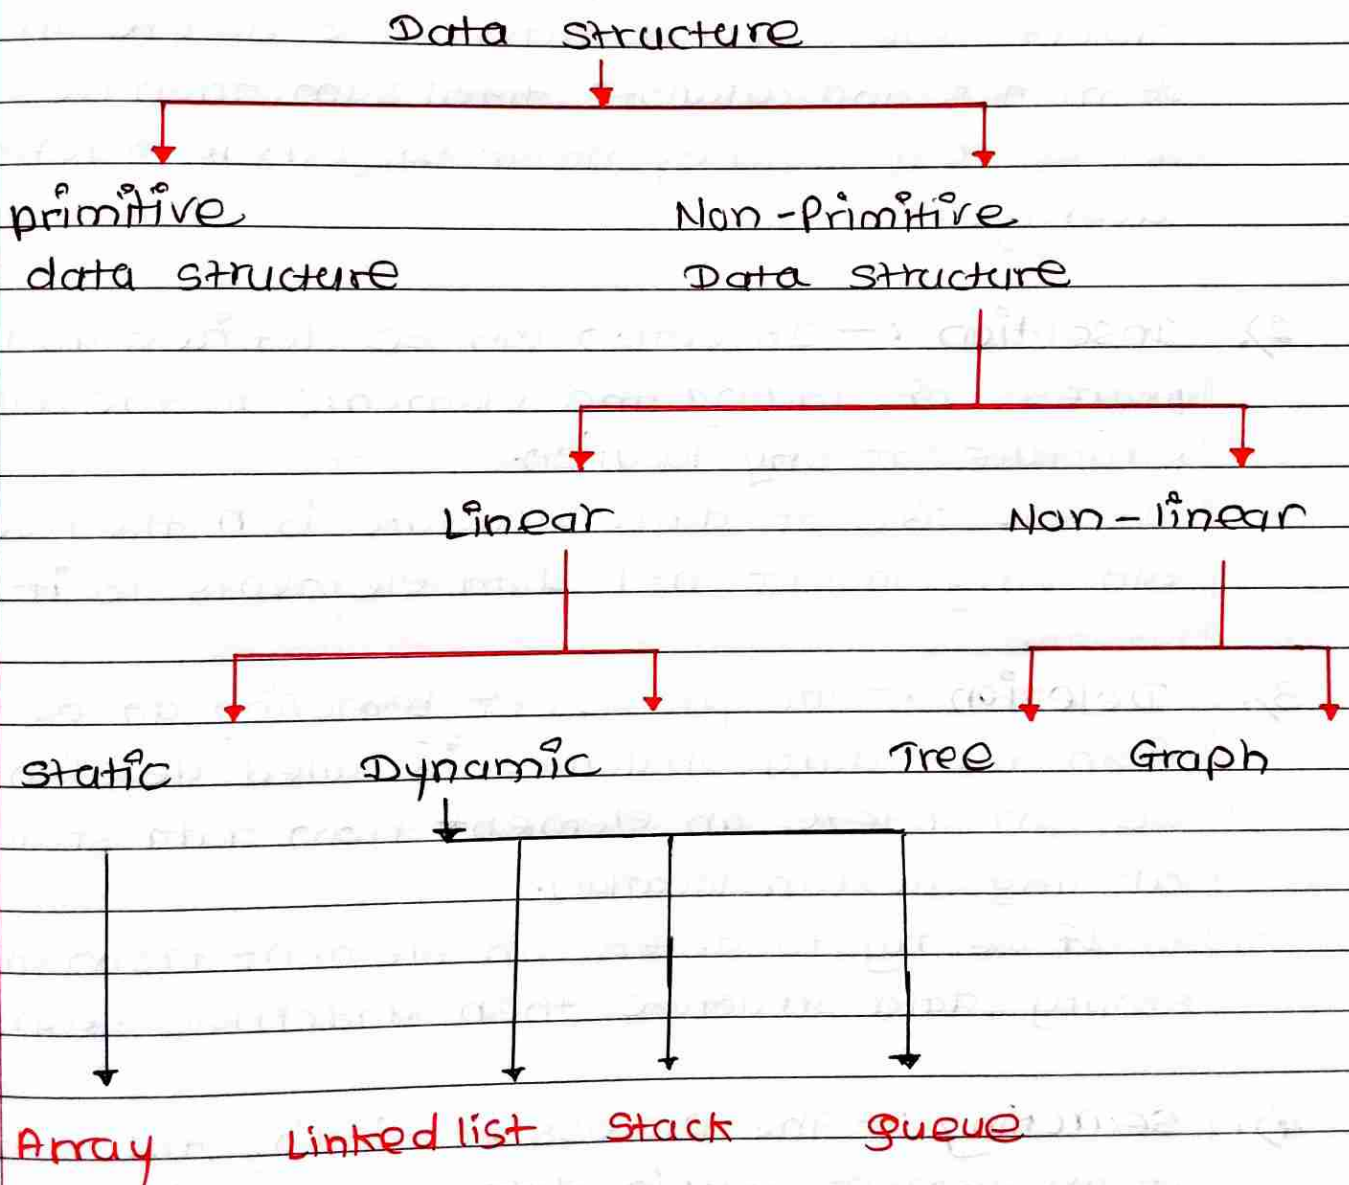 Data structure
primitive Non-Primitive
data structure Data structure
Linear Non-linear
static Dynamic Tree Graph
Array Linked list Stack queue